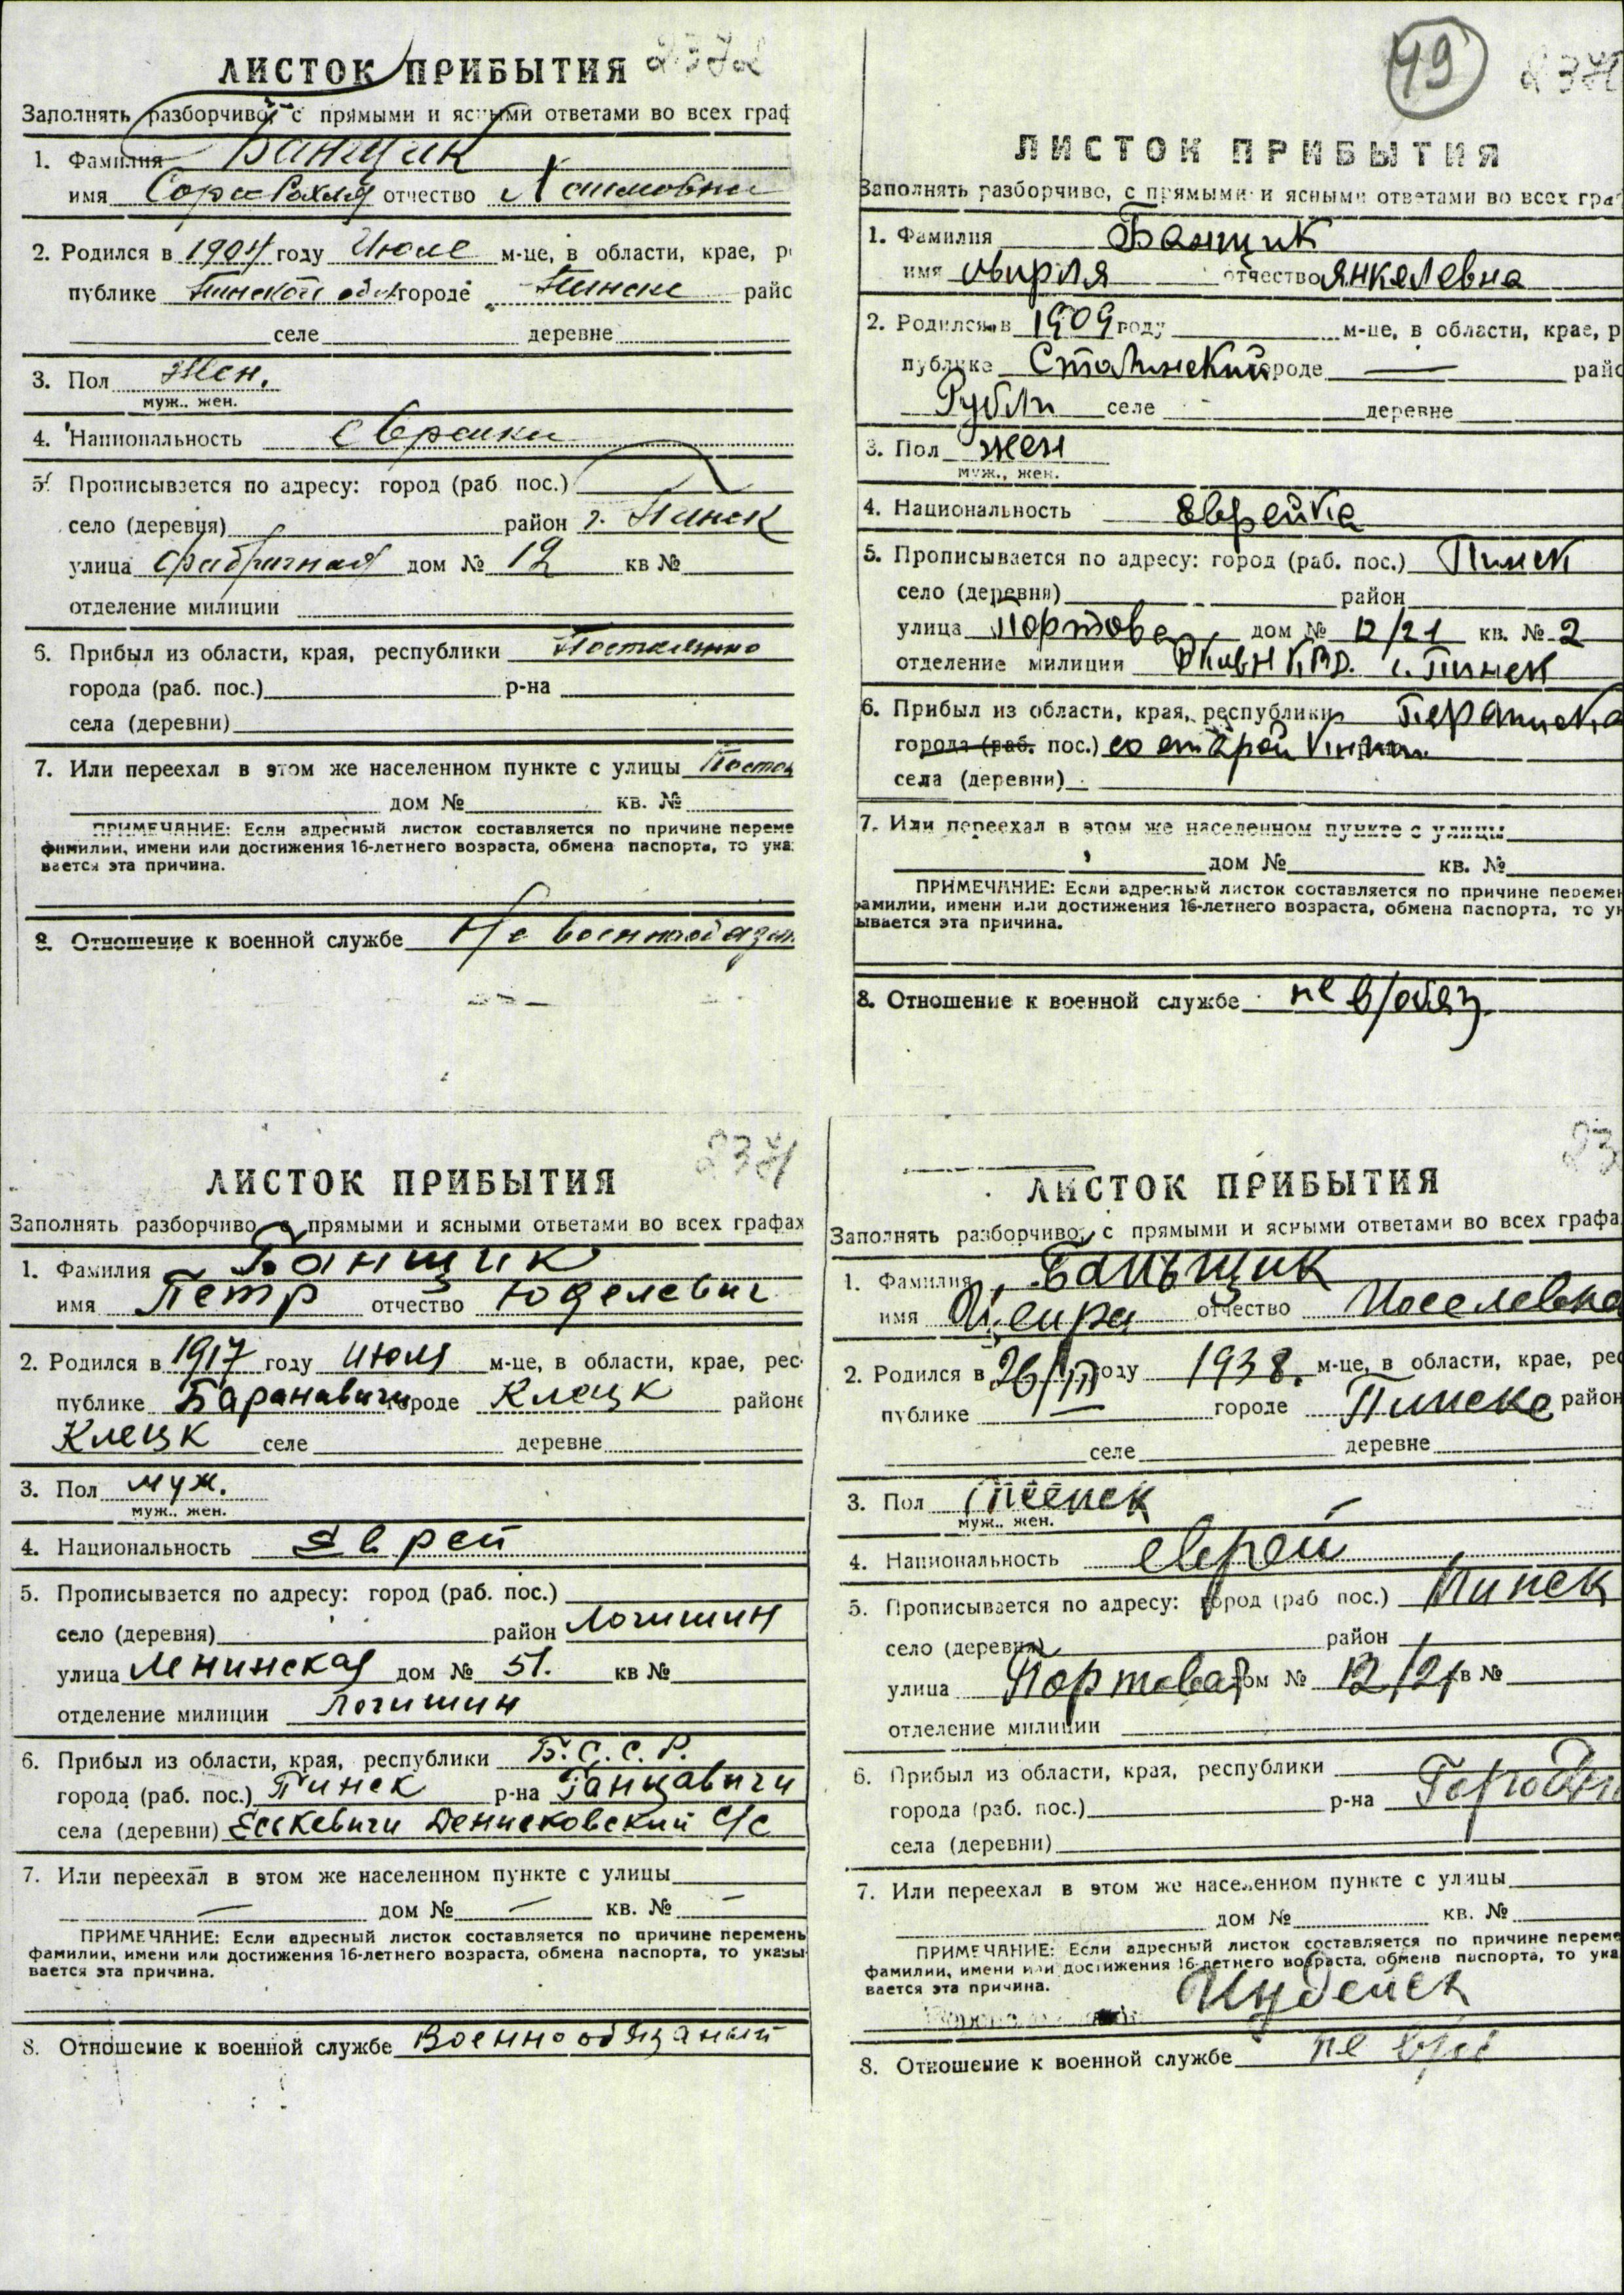 2372
ЛИСТОК ПРИБЫТИЯ
Заполнять разборчиво, с прямыми и ясными ответами во всех граф
1. Фамилия Банщик
имя Сора Рохля отчество
2. Родился в 1904 году Июле м-це, в области, крае, р
публике Пинской обл городе Пинске райс
селе деревне
3. Пол Жен.
муж.. жен.
4. Национальность еврейка
5. Прописывается по адресу: город (раб пос.)
село (деревня) район г. Пинск
улица Фабричная дом № 12 кв №
отделение милиции
6. Прибыл из области, края, республики Постоянно
города (раб. пос.) р-на
села (деревни)
7. Или переехал в этом же населенном пункте с улицы Постоя
дом № кв. №
ПРИМЕЧАНИЕ: Если адресный листок составляется по причине переме
фимилии, имени или достижения 16-летнего возраста, обмена паспорта, то ука
вается эта причина.
8. Отношение к военной службе Не военнообязан
49
237
ЛИСТОК ПРИБЫТИЯ
Заполнять разборчиво, с прямыми и ясными ответами во всех гра
1. Фамилия Банщик
имя отчество Янкелевна
2. Родился в 1909 году м-це, в области, крае, р
публике Столинский городе — райс
Рубли селе деревне
3. Пол жен
муж., жен.
4. Национальность еврейка
5. Прописывается по адресу: город (раб. пос.) Пинск
село (деревня) район
улица Портова дом № 12/21 кв. № 2
отделение милиции НКВД. г. Пинск
6. Прибыл из области, края, республики
города (раб. пос.) со старой книги
села (деревни)
7. Или переехал в этом же населенном пункте с улицы
дом № кв. №
ПРИМЕЧАНИЕ: Если адресный листок составляется по причине перемен
амилии, имени или достижения 16-летнего возраста, обмена паспорта, то ук
ывается эта причина.
8. Отношение к военной службе не в/обяз.
2371
ЛИСТОК ПРИБЫТИЯ
Заполнять разборчиво, с прямыми и ясными ответами во всех графах
1. Фамилия Банщик
имя Петр отчество Юделевич
2. Родился в 1917 году июля м-це, в области, крае, рес
публике Баранавичи городе Клецк районе
Клецк селе деревне
3. Пол муж.
муж.. жен.
4. Национальность Еврей
5. Прописывается по адресу: город (раб. пос.)
село (деревня) район Логишин
улица Ленинская дом № 51. кв №
отделение милиции Логишин
6. Прибыл из области, края, республики Б.С.С.Р.
города (раб. пос.) Пинск р-на Ганцавичи
села (деревни) Еськевичи Денисковский с/с
7. Или переехал в этом же населенном пункте с улицы
— дом № — кв. № —
ПРИМЕЧАНИЕ: Если адресный листок составляется по причине перемень
фамилии, имени или достижения 16-летнего возраста, обмена паспорта, то указы
вается эта причина.
8. Отношение к военной службе Военнообязаный
23
ЛИСТОК ПРИБЫТИЯ
Заполнять разборчиво, с прямыми и ясными ответами во всех графа
1. Фамилия Баньщик
имя отчество Иоселевна
2. Родился в 26/III году 1938. м-це, в области, крае, рес
публике — городе Пинске район
селе деревне
3. Пол
муж.. жен.
4. Национальность еврей
5. Прописывается по адресу: город (раб пос.) Пинск
село (деревня) район
улица Портовая дом № 12/21 кв №
отделение милиции
6. Прибыл из области, края, республики
города (раб. пос.) р-на
села (деревни)
7. Или переехал в этом же населенном пункте с улицы
дом № кв. №
ПРИМЕЧАНИЕ: Если адресный листок составляется по причине переме
фамилии, имени или достижения 16-летнего возраста, обмена паспорта, то ука
вается эта причина.
8. Отношение к военной службе не